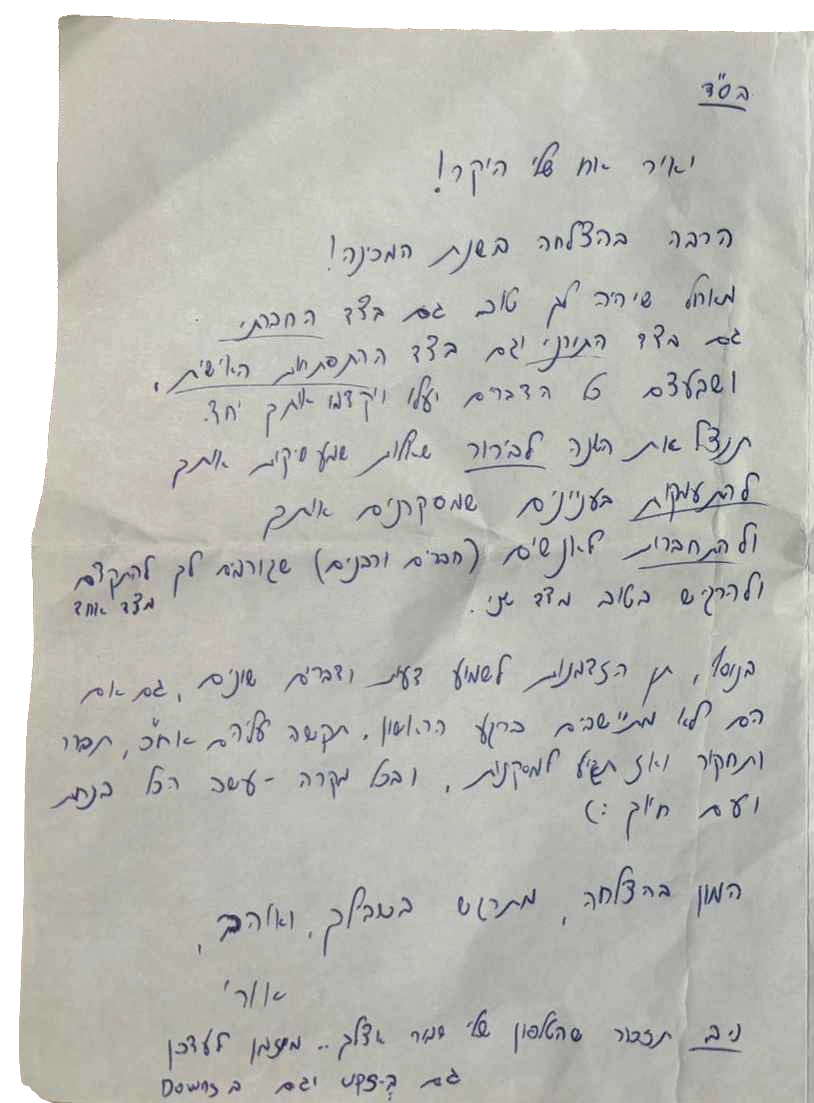 בס"ד
יאיר אח שלי היקר!
הרבה בהצלחה בשנת המכינה!
מאחל שיהיה לך טוב גם בצד החברתי
גם בצד התורני וגם בצד ההתפתחות האישית,
ושבעצם כל הדברים יעלו ויקדמו אותך יחד.
תנצל את השנה לבירור שאלות שמעסיקות אותך
להתעמקות בעניינים שמסקרנים אותך
ולהתחברות לאנשים (חברים ורבנים) שגורמים לך להתקדם
מצד אחד
ולהרגיש בטוב מצד שני.
בנוסף, תן הזדמנות לשמיע דעות ודברים שונים, גם אם
הם לא מתיישבים ברגע הראשון. תקשה עליהם אח"כ, תברר
ותחקור ואז תגיע למסקנות, ובכל מקרה - עשה הכל בנחת
ועם חיוך :)
המון בהצלחה, מתרגש בשבילך, ואוהב,
אורי
נ.ב תזכור שהטלפון שלי שמור אצלך.. מוזמן לעדכן
גם ב-ups וגם ב downs